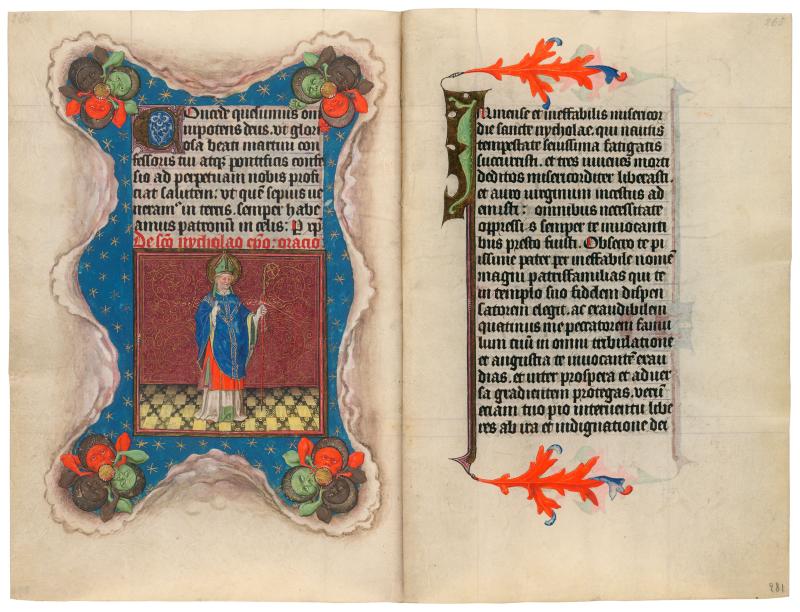 264
Oncede quesumus om
nipotens deus. vt glori
osa beati martini con
fessoris tui atq; pontificis confes
sio ad perpetuam nobis profi
ciat salutem: vt que sepius ve
neram in terris. semper habe
amus patronum in celis: P xp
De sco nycholao epo: oracio
265
Inmense et ineffabilis misericor
die sancte nycholae. qui nautis
tempestate seuissima fatigatis
succuristi. et tres iuuenes morti
deditos misericorditer liberasti.
et auro virginum incestus ad
emisti: omnibus necessitate
oppressis semper te inuocanti
bus presto fuisti. Obsecro te pi
issime pater. per ineffabile nome
magni patrisfamilias qui te
in templo suo fidelem dispen
satorem elegit. ac exaudibilem
quatinus me peccatorem famu
lum tuu in omni tribulatione
et angustia te inuocante exau
dias. et inter prospera et aduer
sa gradientem protegas. veru
etiam tuo pio interuentu libe
res ab ira et indignatione dei
281